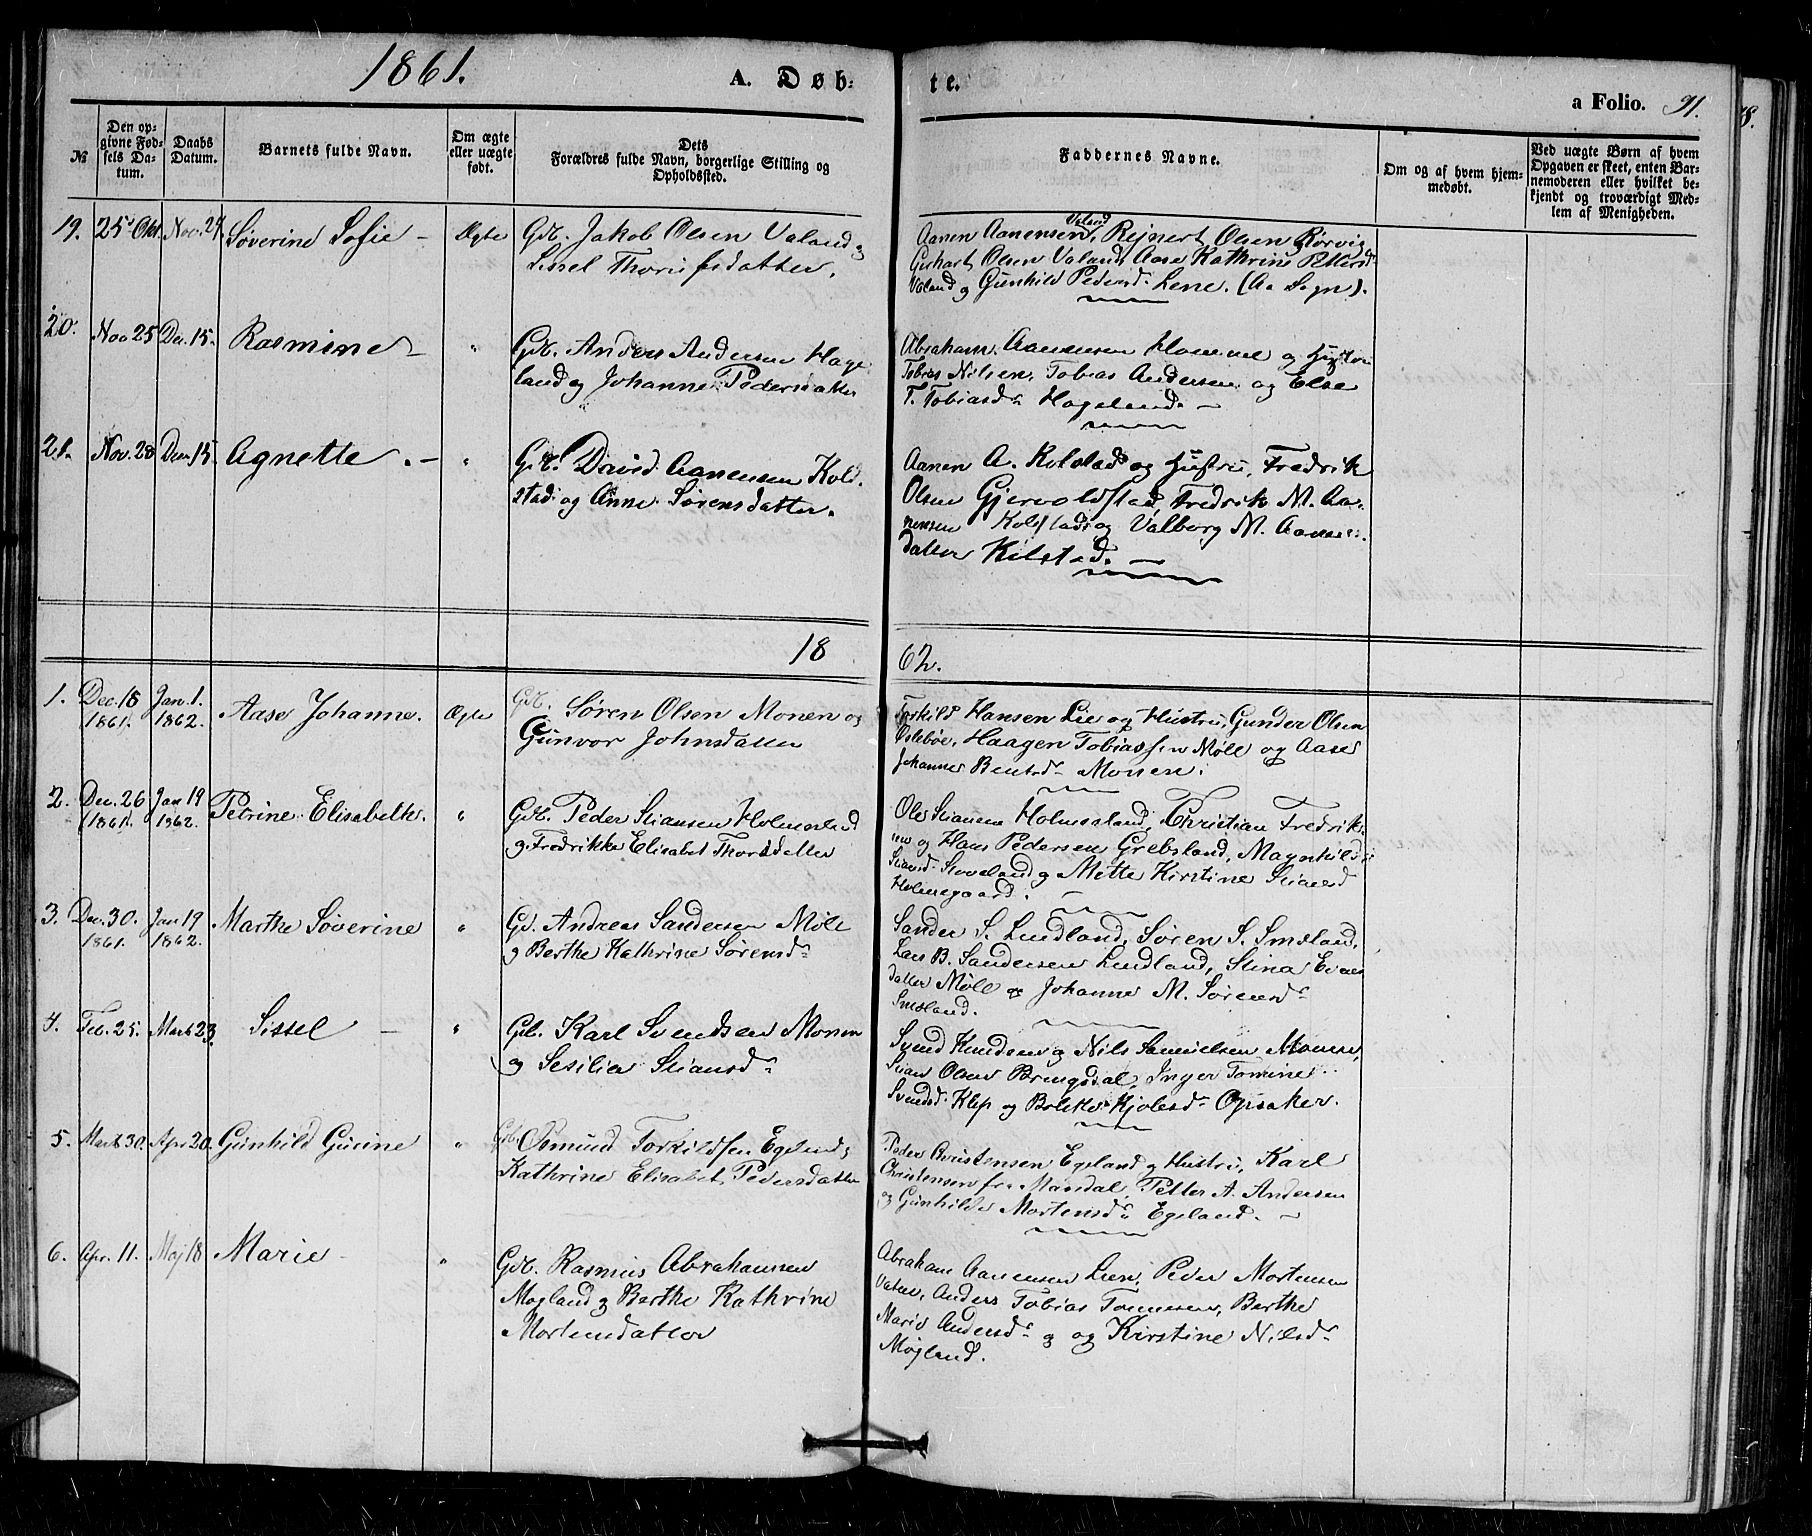 1861.
A. Døb-
te.
a Folio. 91.
№
Den op-
givne Fød-
sels Da-
tum.
Daabs
Datum.
Barnets fulde Navn.
Om ægte
eller uægte
født.
Dets
Forældres fulde Navn, borgerlige Stilling og
Opholdssted.
Faddernes Navne.
Om og af hvem hjem-
medøbt.
Ved uægte Børn af hvem
Opgaven er skeet, enten Bar-
nemoderen eller hvilket be-
kjendt og troværdigt Med-
lem af Menigheden.
19. 25 Okt. Nov. 24 Søverine Sofie – Ægte
Gdb. Jakob Olsen Valand og
Sissel Thorisfsdatter.
Aanen Aanensen Valand, Rejnert Olsen Rørvig,
Gerhart Olsen Valand, Aase Kathrine Pettersd.
Valand og Gunhild Pedersd. Lene. (Aa Sogn).
20. Nov 25 Dec. 15. Rasmine – "
Gdb. Anders Andersen Hage-
land og Johanne Pedersdatter
Abraham Aanensen Homme og Hustru
Tobias Nilsen, Tobias Andersen og Else
T. Tobiasdr Hageland. –
21. Nov. 28 Decm 15. Agnette. – "
Gdb. David Aanensen Kold-
stad og Anne Sørensdatter.
Aanen A. Kolstad og Hustru, Fredrik
Olsen Gjervoldstad, Fredrik M. Aa-
nensen Kolstad og Valborg M. Aanens-
datter Kilstad. –
18 62.
1. Dec. 18 Jan. 1. Aase Johanne. Ægte
1861. 1862.
Gdb. Søren Olsen Monen og
Gunvor Johnsdatter
Torkild Hansen Lie og Hustru, Gunder Olsen
Oslebøe, Haagen Tobiassen Möll og Aase
Johanne Bentsd. Monen.
2. Dec. 26 Jan 19 Petrine Elisabeth. "
1861. 1862.
Gdb. Peder Stiansen Holmesland
og Fredrikke Elisabet Thorsdatter
Ole Stiansen Holmesland, Christian Fredrik-
sen og Hans Pedersen Grebsland, Magnhild
Stiansd. Stoveland og Mette Kirstine Stiansd
Holmegaard.
3. Dec. 30. Jan 19 Marthe Søverine "
1861. 1862.
Gd. Andreas Sandersen Möll
og Berthe Kathrine Sørensdr
Sander S. Lindland, Søren S. Smeland,
Lars B. Sandersen Lindland, Stina Evens-
datter Möll og Johanne M. Sørensdr
Smeland.
4. Feb. 25. Marts 23. Sissel – "
Gdb. Karl Svendsen Monen
og Sesilie Stiansdr
Svend Knudsen og Nils Samuelsen Monen,
Stian Olsen Bringsdal, Inger Tomine
Svendsd. Klep og Bolette Kjølesdr Opsaker.
5. Marts 30. Apr 20. Gunhild Gurine "
Gdb. Osmund Torkildsen Egeland og
Kathrine Elisabet Pedersdatter
Peder Christensen Egeland og Hustru, Karl
Christensen fra Mandal, Petter A. Andersen
og Gunhilde Mortensdr Egeland. –
6. Apr. 11. Maj 18 Marie "
Gdb. Rasmus Abrahamsen
Mogland og Berthe Kathrine
Mortensdatter
Abraham Aanensen Lien, Peder Mortensen
Vatne, Anders Tobias Tønnesen, Berthe
Marie Andersdr og og Kirstine Nilsdr
Møjland.